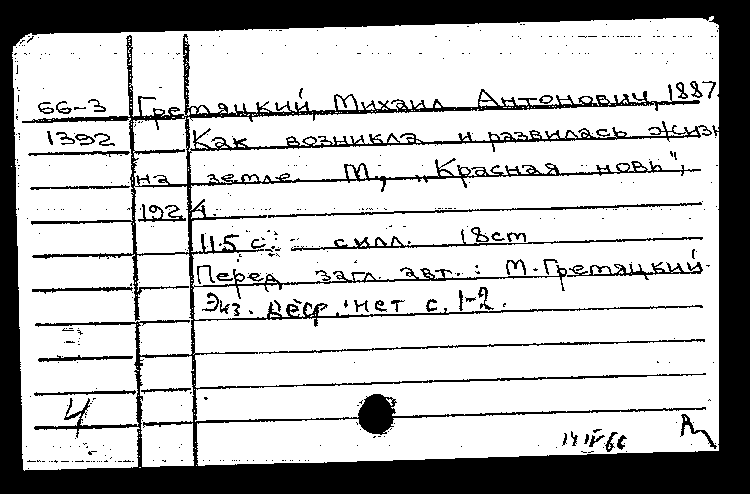 66-3 Гремяцкий, Михаил Антонович, 1887.
1392 Как возникла и развилась жизн
на земле. М., „Красная новь",
1924.
115 с. с илл. 18 cm
Перед загл. авт.: М. Гремяцкий.
Экз. деф.: нет с. 1-2.
4
14 IV 66